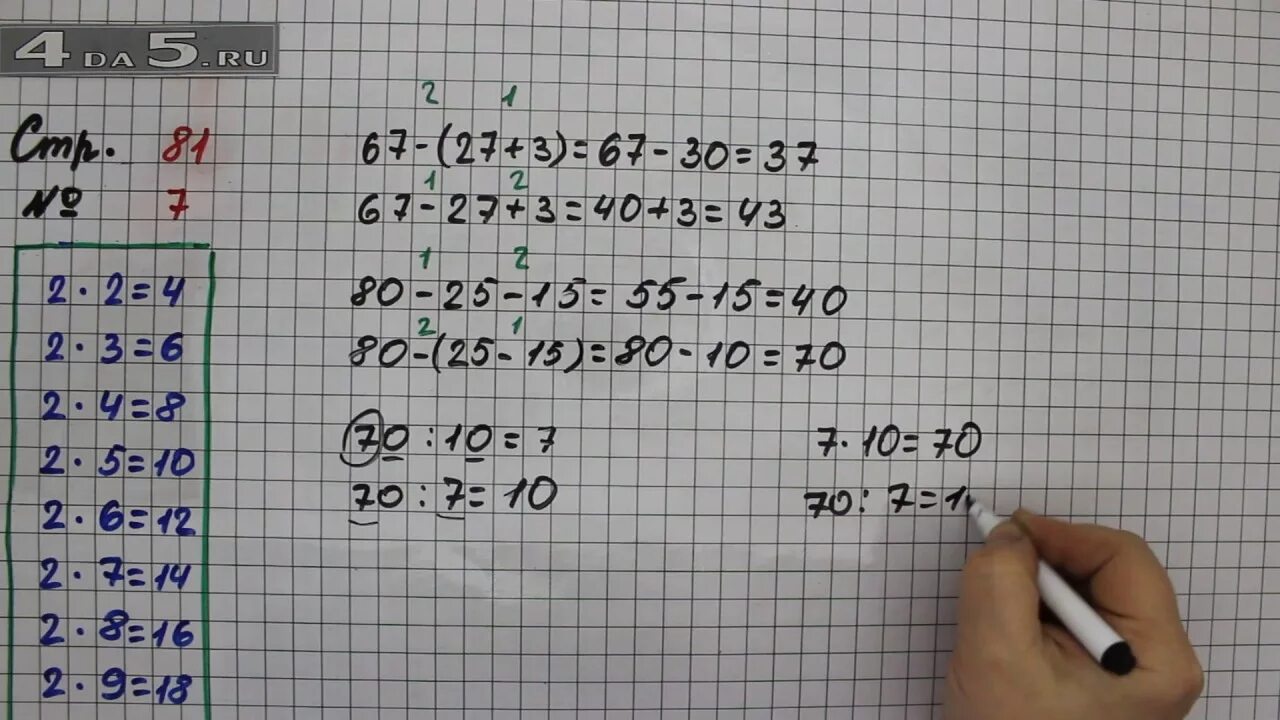 4DA5.RU
Стр. 81
№ 7
2 · 2 = 4
2 · 3 = 6
2 · 4 = 8
2 · 5 = 10
2 · 6 = 12
2 · 7 = 14
2 · 8 = 16
2 · 9 = 18
2 1
67 - (27 + 3) = 67 - 30 = 37
1 2
67 - 27 + 3 = 40 + 3 = 43
1 2
80 - 25 - 15 = 55 - 15 = 40
2 1
80 - (25 - 15) = 80 - 10 = 70
70 : 10 = 7
70 : 7 = 10
7 · 10 = 70
70 : 7 = 1